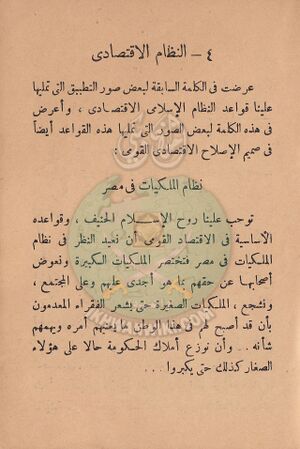 ٤ – النظام الاقتصادى
عرضت فى الكلمة السابقة لبعض صور التطبيق التى تمليها
علينا قواعد النظام الإسلامى الاقتصادى ، وأعرض
فى هذه الكلمة لبعض الصور التى تمليها هذه القواعد أيضاً
فى صميم الإصلاح الاقتصادى القومى :
نظام الملكيات فى مصر
توجب علينا روح الإسلام الحنيف ، وقواعده
الأساسية فى الاقتصاد القومى أن نعيد النظر فى نظام
الملكيات فى مصر فنختصر الملكيات الكبيرة ونعوض
أصحابها عن حقهم بما هو أجدى عليهم وعلى المجتمع ،
ونشجع ، الملكيات الصغيرة حتى يشعر الفقراء المعدمون
بأن قد أصبح لهم فى هذا الوطن ما يعنيهم أمره ويهمهم
شأنه .. وأن نوزع أملاك الحكومة حالا على هؤلاء
الصغار كذلك حتى يكبروا ...